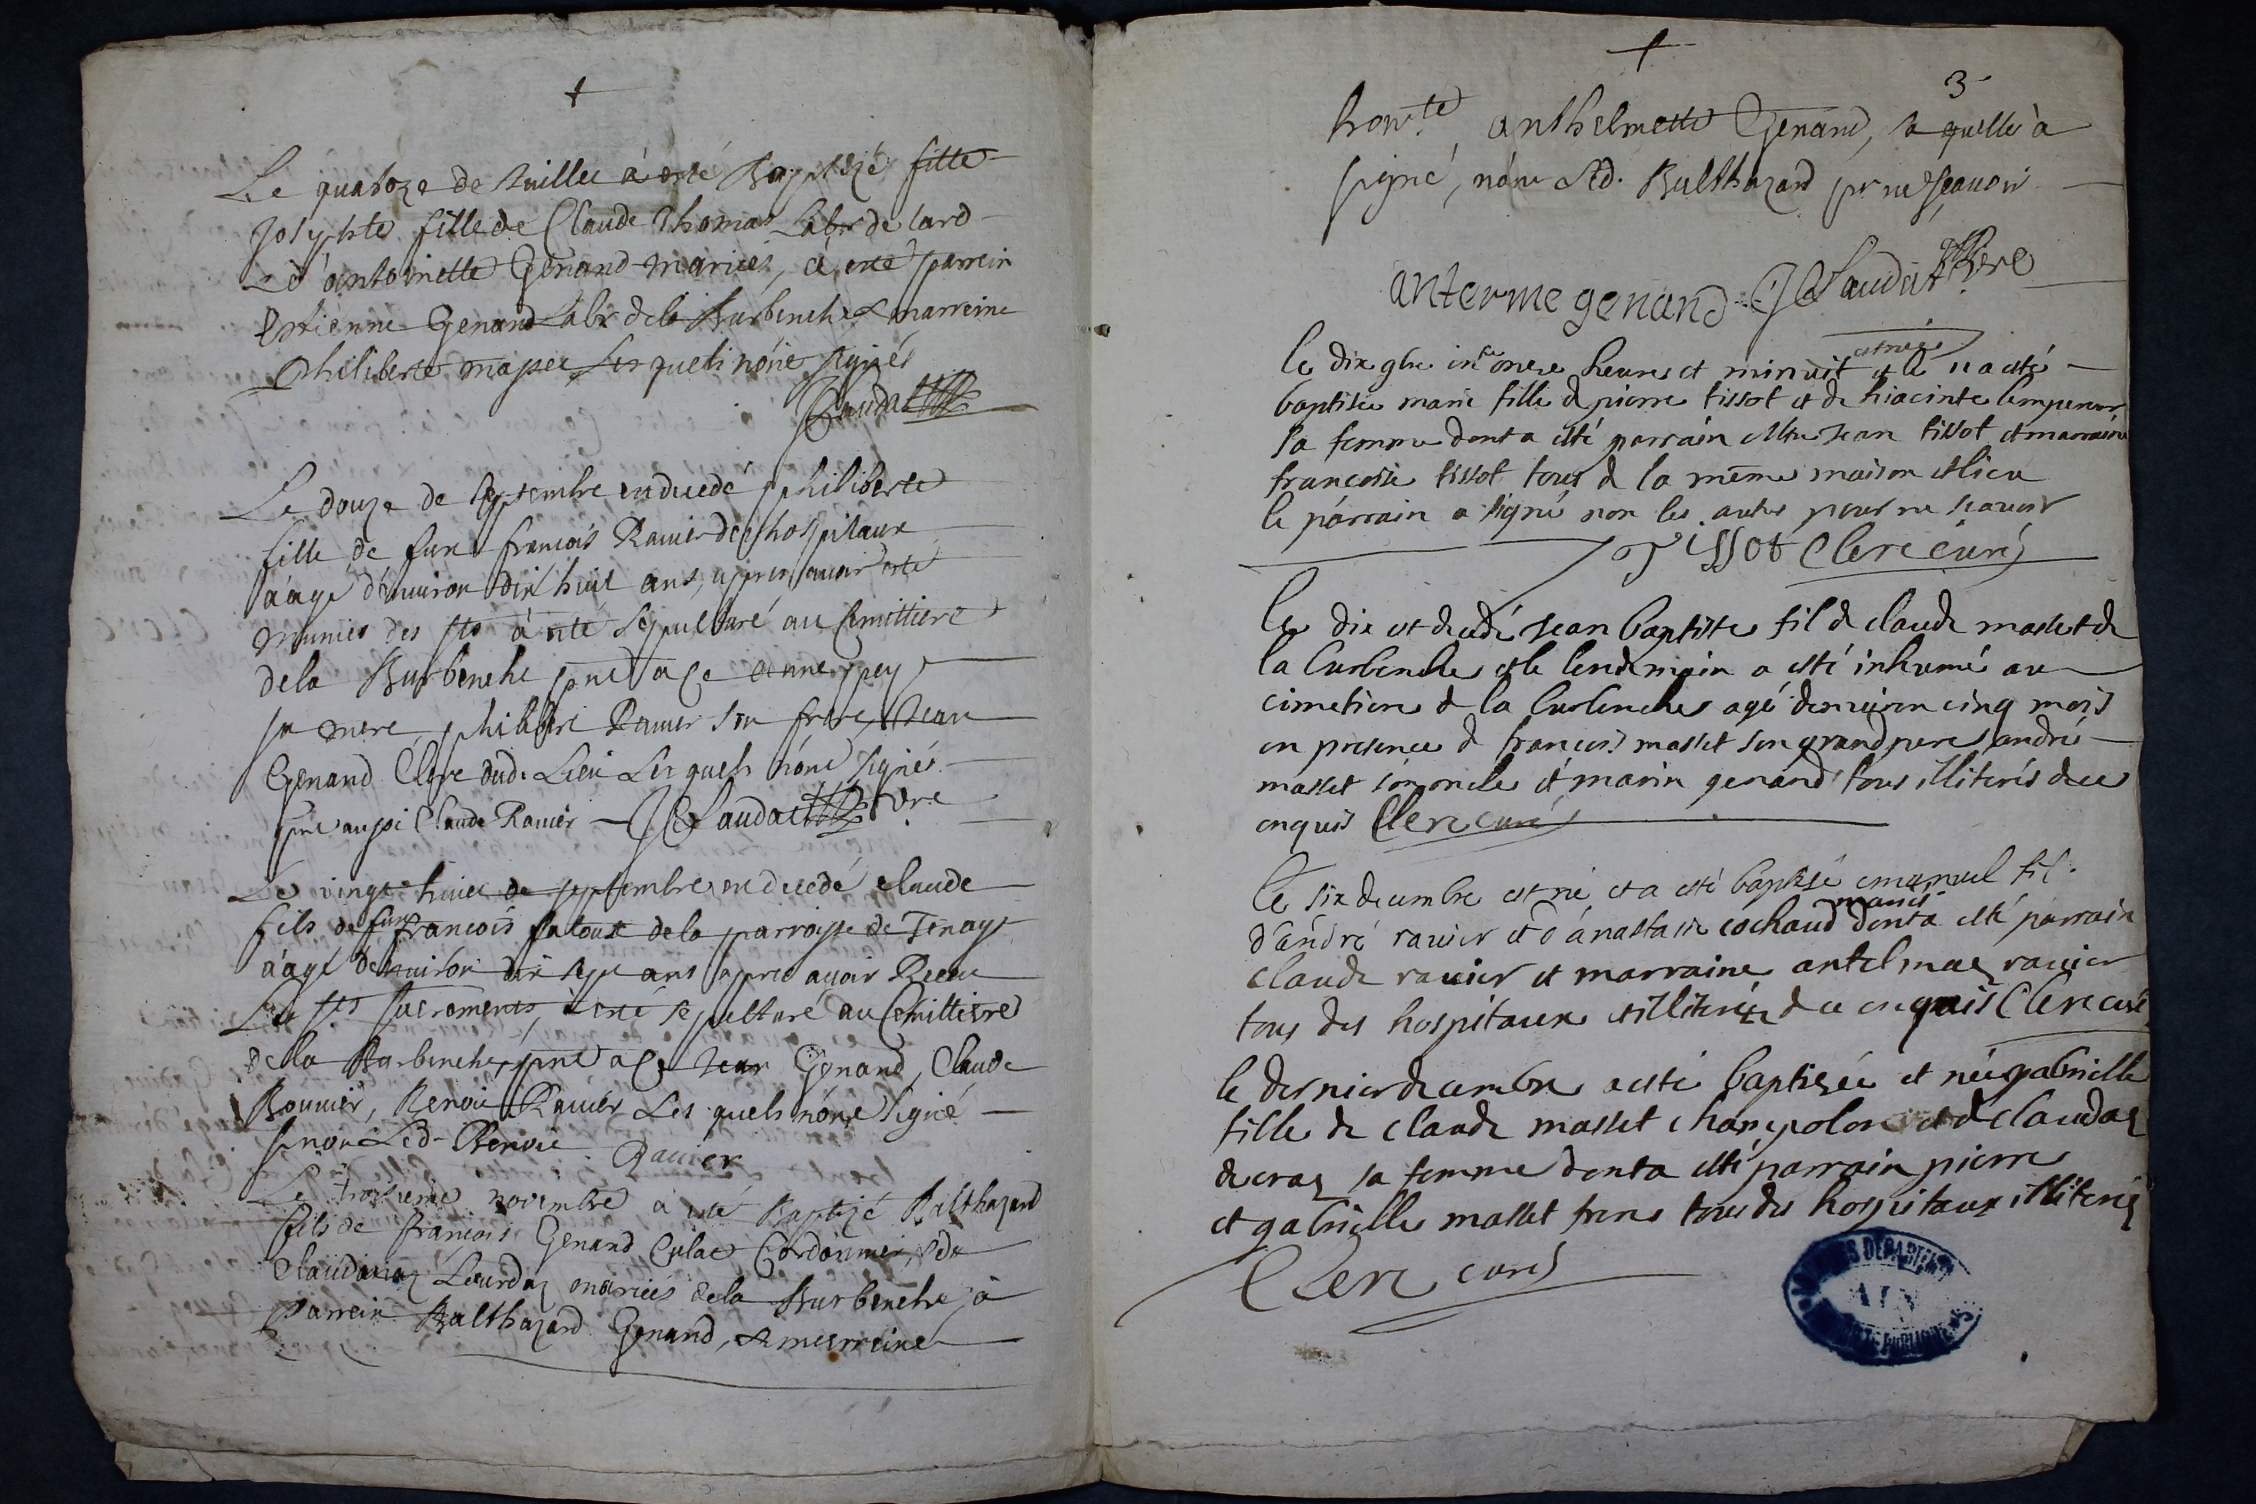 Le quatorze de Juillet à esté Baptizé fille
Josephte fille de Claude Thomas Labr de lard
& d'antoinette Genand mariés, a esté parrein
Estienne Genand labr dela Burbenche & marreine
Philiberte masset Lesquels n'ónt signés
Claudat
Le douze de septembre est decedé philiberte
fille de fut françois Rauier des hospitaux
áagé d'enuiron dix huit ans, apres auoir esté
munies des sts à esté sepulturé au Cemittiere
dela Burbenche pnt a ce anne pey
sa mere, philibert Rauier son frere, Jean
Genand Clerc dud. Lieu Lesquels n'ónt signés
pnt aussi Claude Rauier J Claudat Pbre
Le vingt huict de septembre est decedé claude
fils de fut françois falouse de la parroisse de Tenay
áagé d'enuiron dix sept ans apres auoir Receu
Les sts sacrements, à esté sepulturé au Cemittiere
de la Burbenche, pnt a ce Jean Genand, Claude
Bouuier, Benoit Rauier Les quels n'ónt signé
sinon Led. Benoit Rauier
Le troisieme novembre a esté Baptizé Balthazard
fils de françois Genand Culat Cordonnier, & de
Claudaz Lourdaz mariés dela Burbenche, à
Parrein Balthazard Genand, & marreine
3
hon.te anthelmette Genand, la quelle à
signé, nón Led. Balthazard pr ne sçauoir
anterme genand J Claudat Pbre
le dix 9bre entre onze heures et minuit est née
et le 11 a esté
baptisée marie fille de pierre tissot et de hiacinte lempereur
sa femme dont a esté parrain Me Jean tissot et marraine
françoise tissot tous de la même maison et lieu
le parrain a signé non les autres pour ne scauoir
Tissot Clerc curé
Le dix est decedé Jean baptiste fil de claude masset de
la burbenche et le lendemain a esté inhumé au
cimetiere de la burbenche agé denuiron cinq mois
en presence de françois masset son grand pere, andré
masset son oncle et marin genand tous illiterés de ce
enquis Clerc curé
Le six decembre est né et a esté baptisé emanuel fil
d'andré rauier et d'anastasie cochaud mariés dont a esté parrain
claude rauier et marraine antelmaz rauier
tous des hospitaux et illiterés de ce enquis Clerc curé
le dernier decembre a esté baptisée et née gabrielle
fille de claude masset champolon et de claudaz
decraz sa femme dont a esté parrain pierre
et gabrielle masset frere tous des hospitaux illiterés
Clerc curé